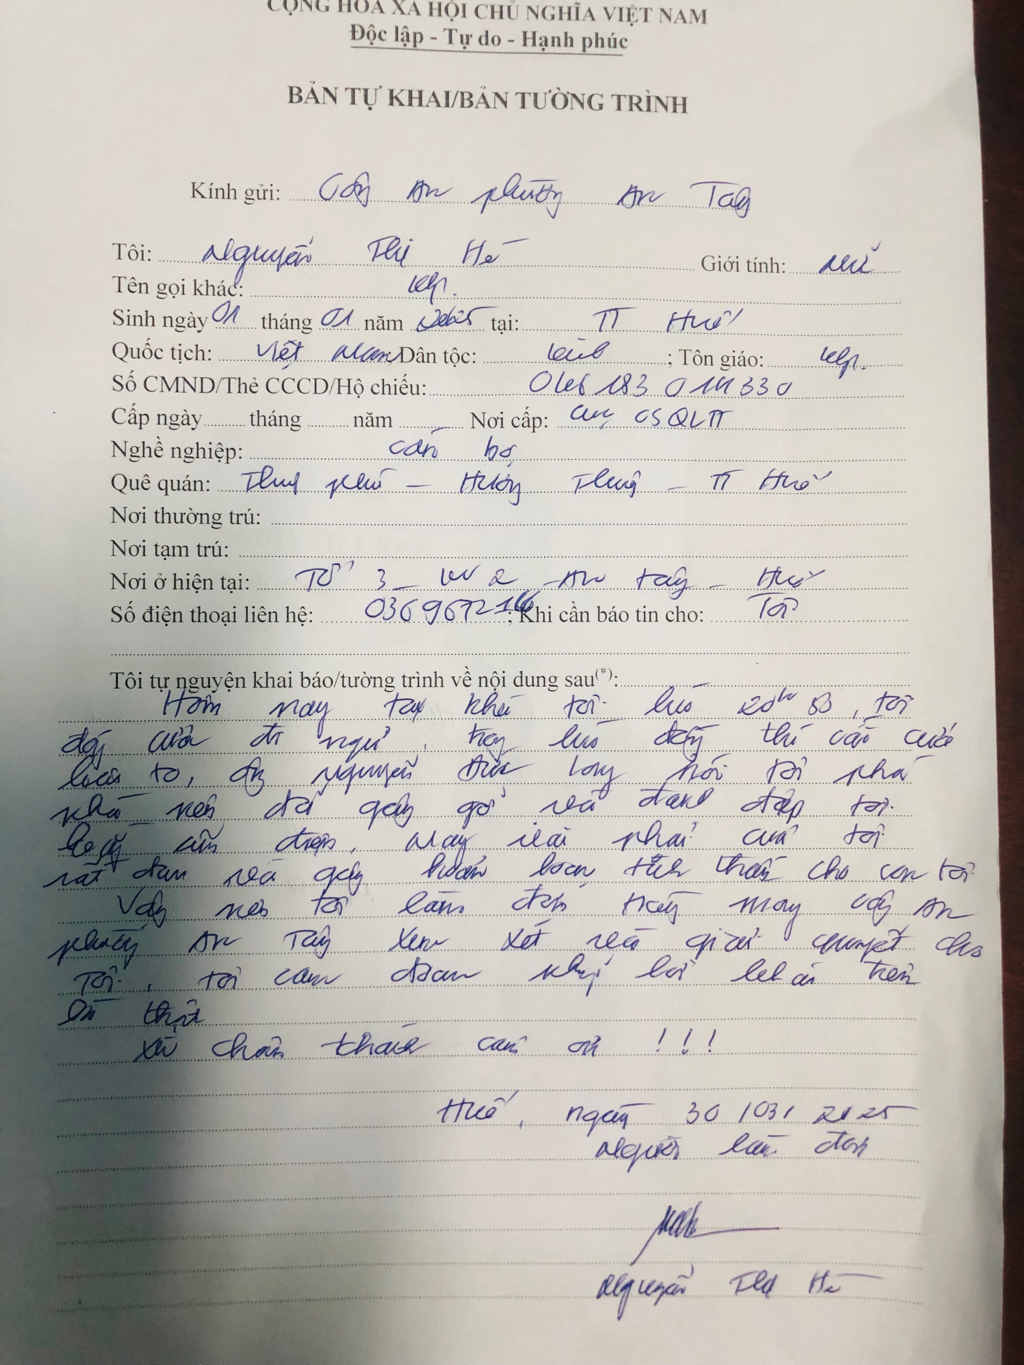 CỘNG HÒA XÃ HỘI CHỦ NGHĨA VIỆT NAM
Độc lập - Tự do - Hạnh phúc
BẢN TỰ KHAI/BẢN TƯỜNG TRÌNH
Kính gửi: Công An phường An Tây
Tôi: Nguyễn Thị Hè Giới tính: Nữ
Tên gọi khác:
Sinh ngày 01 tháng 01 năm tại: TT Huế
Quốc tịch: Việt Nam Dân tộc: kinh ; Tôn giáo:
Số CMND/Thẻ CCCD/Hộ chiếu:
Cấp ngày tháng năm Nơi cấp: cục CSQLTT
Nghề nghiệp: cán bộ
Quê quán: phú – Hương Thủy – TT Huế
Nơi thường trú:
Nơi tạm trú:
Nơi ở hiện tại: Tổ 3 – – An Tây – Huế
Số điện thoại liên hệ: ; Khi cần báo tin cho: Tôi
Tôi tự nguyện khai báo/tường trình về nội dung sau(*):
Hôm nay tại nhà tôi lúc 20h 53, tôi
đóng cửa đi ngủ, trong lúc đóng thì cánh cửa
kêu to, ông Nguyễn Đức Long nói tôi phá
nhà nên đã gây gổ và đánh đập tôi
tay phải của tôi
rất đau và gây hoảng loạn tinh thần cho con tôi
Vậy nên tôi làm đơn này mong công An
phường An Tây xem xét và giải quyết cho
Tôi, tôi cam đoan những lời khai trên
là thật
Xin chân thành cảm ơn !!!
Huế, ngày 30/03/2025
Người làm đơn
Nguyễn Thị Hè